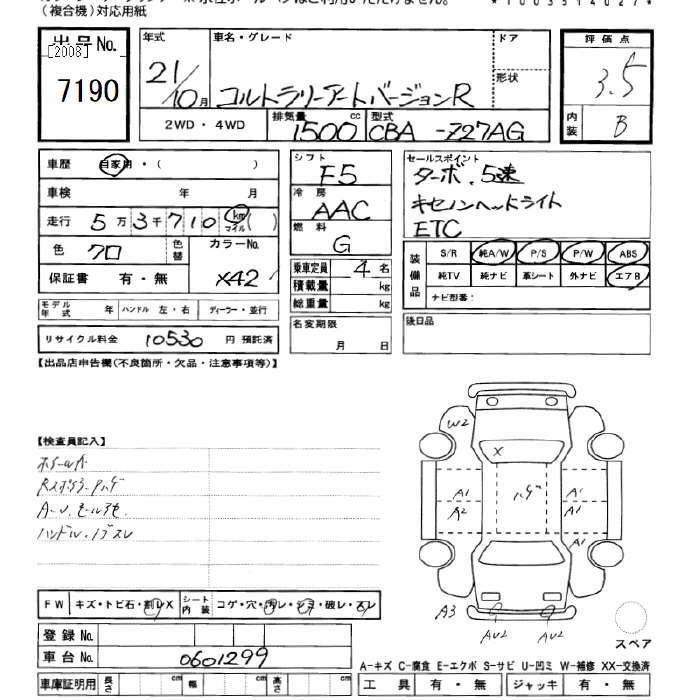 (複合機)対応用紙
出品No.
[2008]
7190
年式
21/10月
車名・グレード
コルトラリーアートバージョンR
ドア
形状
2WD・4WD
排気量
1500 cc
型式
CBA-Z27AG
評価点
3.5
内装
B
車歴 自家用・( )
車検 年 月
走行 5万3千710 km マイル ( )
色 クロ 色替 カラーNo. X42
保証書 有・無
モデル年式 年 ハンドル 左・右 ディーラー・並行
リサイクル料金 10530 円 預託済
シフト
F5
冷房
AAC
燃料
G
乗車定員 4名
積載量 kg
総重量 kg
名変期限
月 日
セールスポイント
ターボ、5速
キセノンヘッドライト
ETC
装備品
S/R 純A/W P/S P/W ABS
純TV 純ナビ 革シート 外ナビ エアB
ナビ型番:
後日品
【出品店申告欄(不良箇所・欠品・注意事項等)】
【検査員記入】
ホイールA
Rスポイラーハゲ
A-U、モールアセ、
ハンドル、ノブスレ
W2
X
ハゲ
A1
A2
A1
A1
A3
AU2
AU2
スペア
FW キズ・トビ石・割レX シート内装 コゲ・穴・汚レ・シミ・破レ・スレ
登録No.
車台No. 0601299
車庫証明用 長さ cm 幅 cm 高さ cm
A-キズ C-腐食 E-エクボ S-サビ U-凹ミ W-補修 XX-交換済
工具 有・無 ジャッキ 有・無